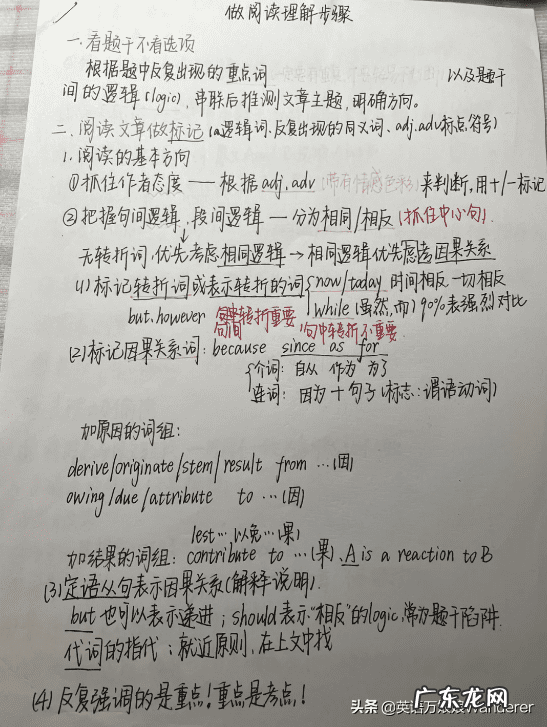 做阅读理解步骤
一.看题干不看选项
根据题中反复出现的重点词 以及题干
间的逻辑(logic),串联后推测文章主题,明确方向。
二.阅读文章做标记(a逻辑词.反复出现的同义词、adj.adv标点符号)
1.阅读的基本方向
①抓住作者态度——根据adj.adv(带有情感色彩)来判断,用+/-标记
②把握句间逻辑、段间逻辑—分为相同/相反(抓住中心句)
无转折词,优先考虑相同逻辑→相同逻辑优先考因果关系
(1)标记转折词或表示转折的词 now/today 时间相反一切相反
but.however 句间转折重要 句中转折不重要 while(虽然,而)90%表强烈对比
(2)标记因果关系词:because since as for
介词:自从 作为 为了
连词:因为+句子(标志:谓语动词)
加原因的词组:
derive/originate/stem/result from …(因)
owing/due/attribute to …(因)
lest…以免…(果)
加结果的词组:contribute to …(果).A is a reaction to B
(3)定语从句表示因果关系(解释说明)
but也可以表示递进;should表示"相反"的logic,常为题干陷阱.
代词的指代:就近原则,在上文中找
(4)反复强调的是重点!重点是考点!
头条@英语万
Wanderer
广东龙网